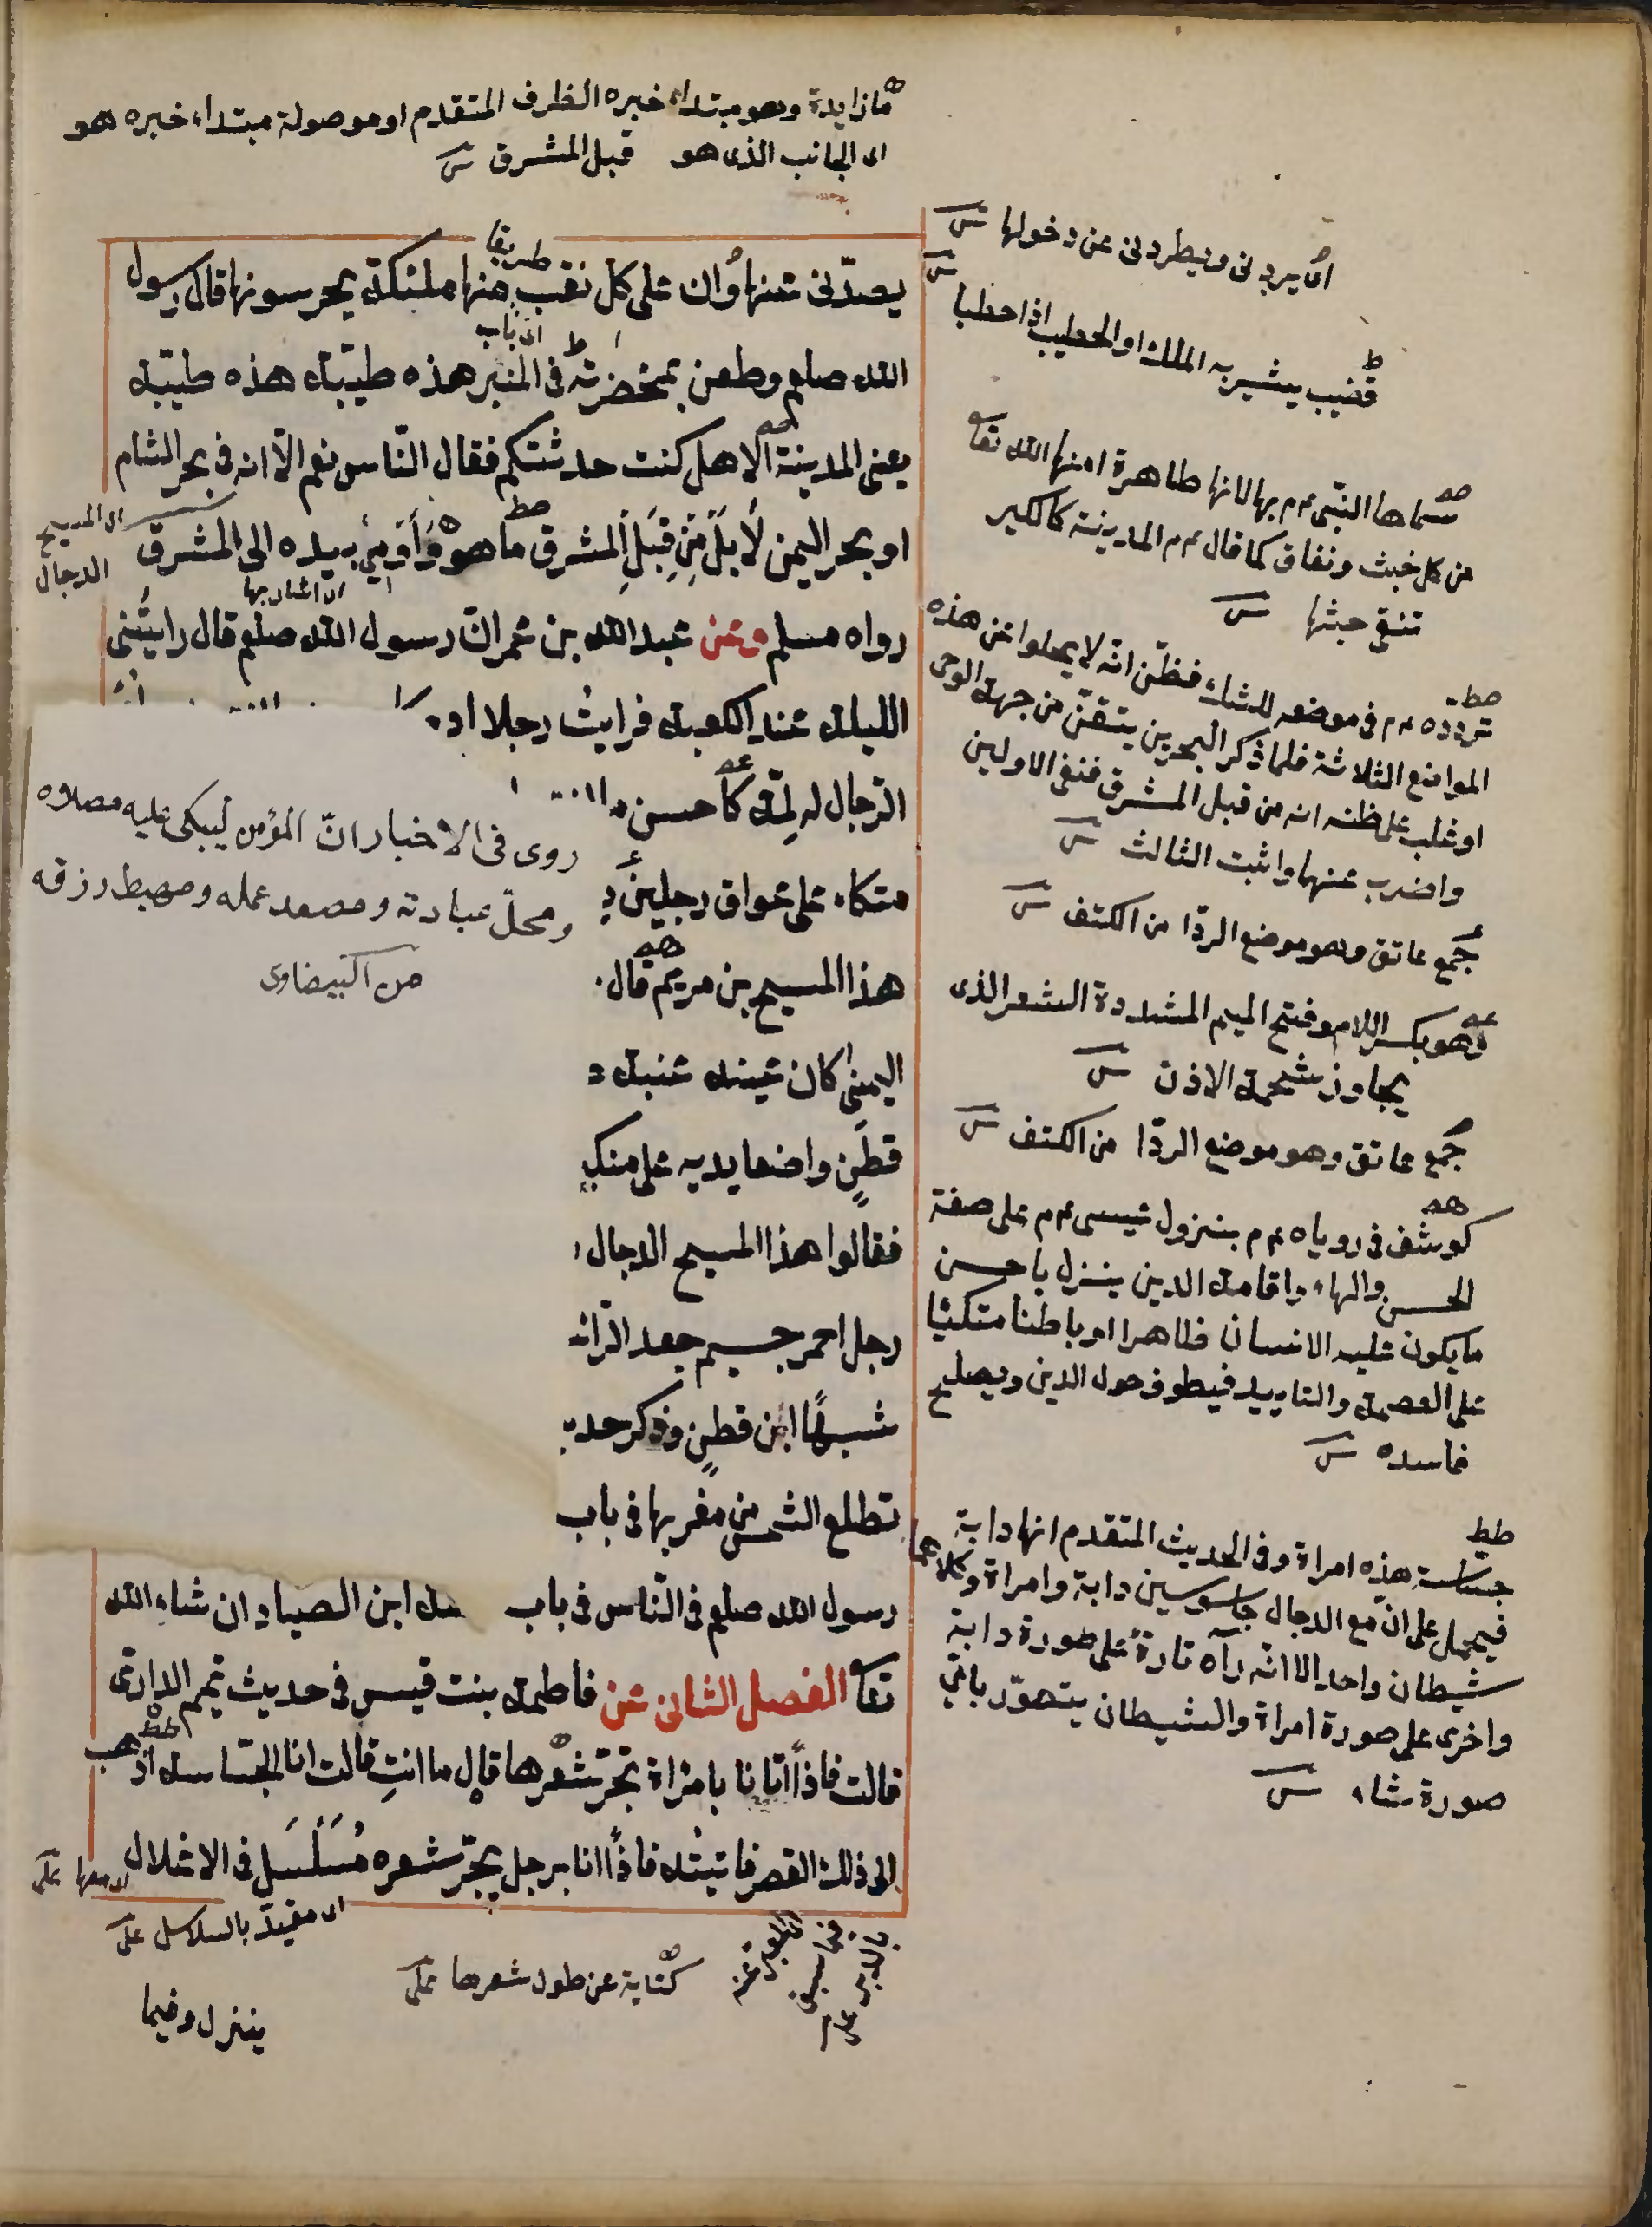 ما زايدة وهو مبتداء خبره الظرف المتقدم او موصولة مبتداء خبره هو
اى الجانب الذى هو قبل المشرق
يصدّنى عنها وان على كل نقب منها ملئكة يحرسونها قال رسول
طريقا
الله صلعم وطعن بمخصرته فى المنبر هذه طيبة هذه طيبة
اى باب
يعنى المدينة الا هل كنت حدثتكم فقال النّاس نعم الّا انه فى بحر الشام
او بحر اليمن لا بل من قبل المشرق ما هو وأومئ بيده الى المشرق
اى المسيح
الدجال
اى اشار بها
رواه مسلم وعن عبد الله بن عمر ان رسول الله صلعم قال رايتنى
الليلة عند الكعبة فرايت رجلا اد
الرّجال له لمّة كاحسن ما
متكاء على عواتق رجلين
هذا المسيح بن مريم قال
اليمنى كان عينه عنبة
قطن واضعا يديه على منكبى
فقالوا هذا المسيح الدجال
رجل احمر جسيم جعد الرأ
شبهًا ابن قطن وذكر حد
تطلع الشمس من مغربها فى باب
رسول الله صلعم فى النّاس فى باب ابن الصياد ان شاء الله
تعا الفصل الثانى عن فاطمة بنت قيس فى حديث تميم الدارى
قالت فاذًا انا بامراة تجرّ شعرها قال ما انتِ قالت انا الجسّاسة اذهب
الى ذلك القصر فاتيته فاذًا انا برجل يجرّ شعره مسلسل فى الاغلال
اى مقيد بالسلاسل
كناية عن طول شعرها
ينزل وفيما
روى فى الاخبار انّ المؤمن ليبكى عليه مصلاه
ومحلّ عبادته ومصعد عمله ومهبط رزقه
من البيضاوى
اى يردنى ويطردنى عن دخولها
قضيب يشير به الملك او الخطيب اذا خطبا
سماها النبّى عم بها لانها طاهرة امنها الله تعا
من كل خبث ونفاق كما قال عم المدينة كالكير
تنقى خبثها
تردده عم فى موضعه للشك فظنّ انّه لا يخلوا عن هذه
المواضع الثلاثة فلما ذكر البحرين يتقن من جهة الوحى
او غلب على ظنه انه من قبل المشرق فنفى الاولين
واضرب عنهما واثبت الثالث
جمع عاتق وهو موضع الردّا من الكتف
وهو بكسر اللام وفتح الميم المشددة الشعر الذى
يجاوز شحمة الاذن
جمع عاتق وهو موضع الردّا من الكتف
كوشف فى روياه عم بنزول عيسى عم على صفة
الحسن والبهاء واقامة الدين ينزل باحسن
ما يكون عليه الانسان ظاهرا او باطنا متكئا
على العصمة والتاييد فيطوف حول الدين ويصلح
فاسده
جساسة هذه امراة وفى الحديث المتقدم انها دابة
فيحمل على انّ مع الدجال جاسوسين دابة وامراة وكلاهما
شيطان واحد الا انّه رآه تارةً على صورة دابة
واخرى على صورة امراة والشيطان يتصوّر باىّ
صورة شاء